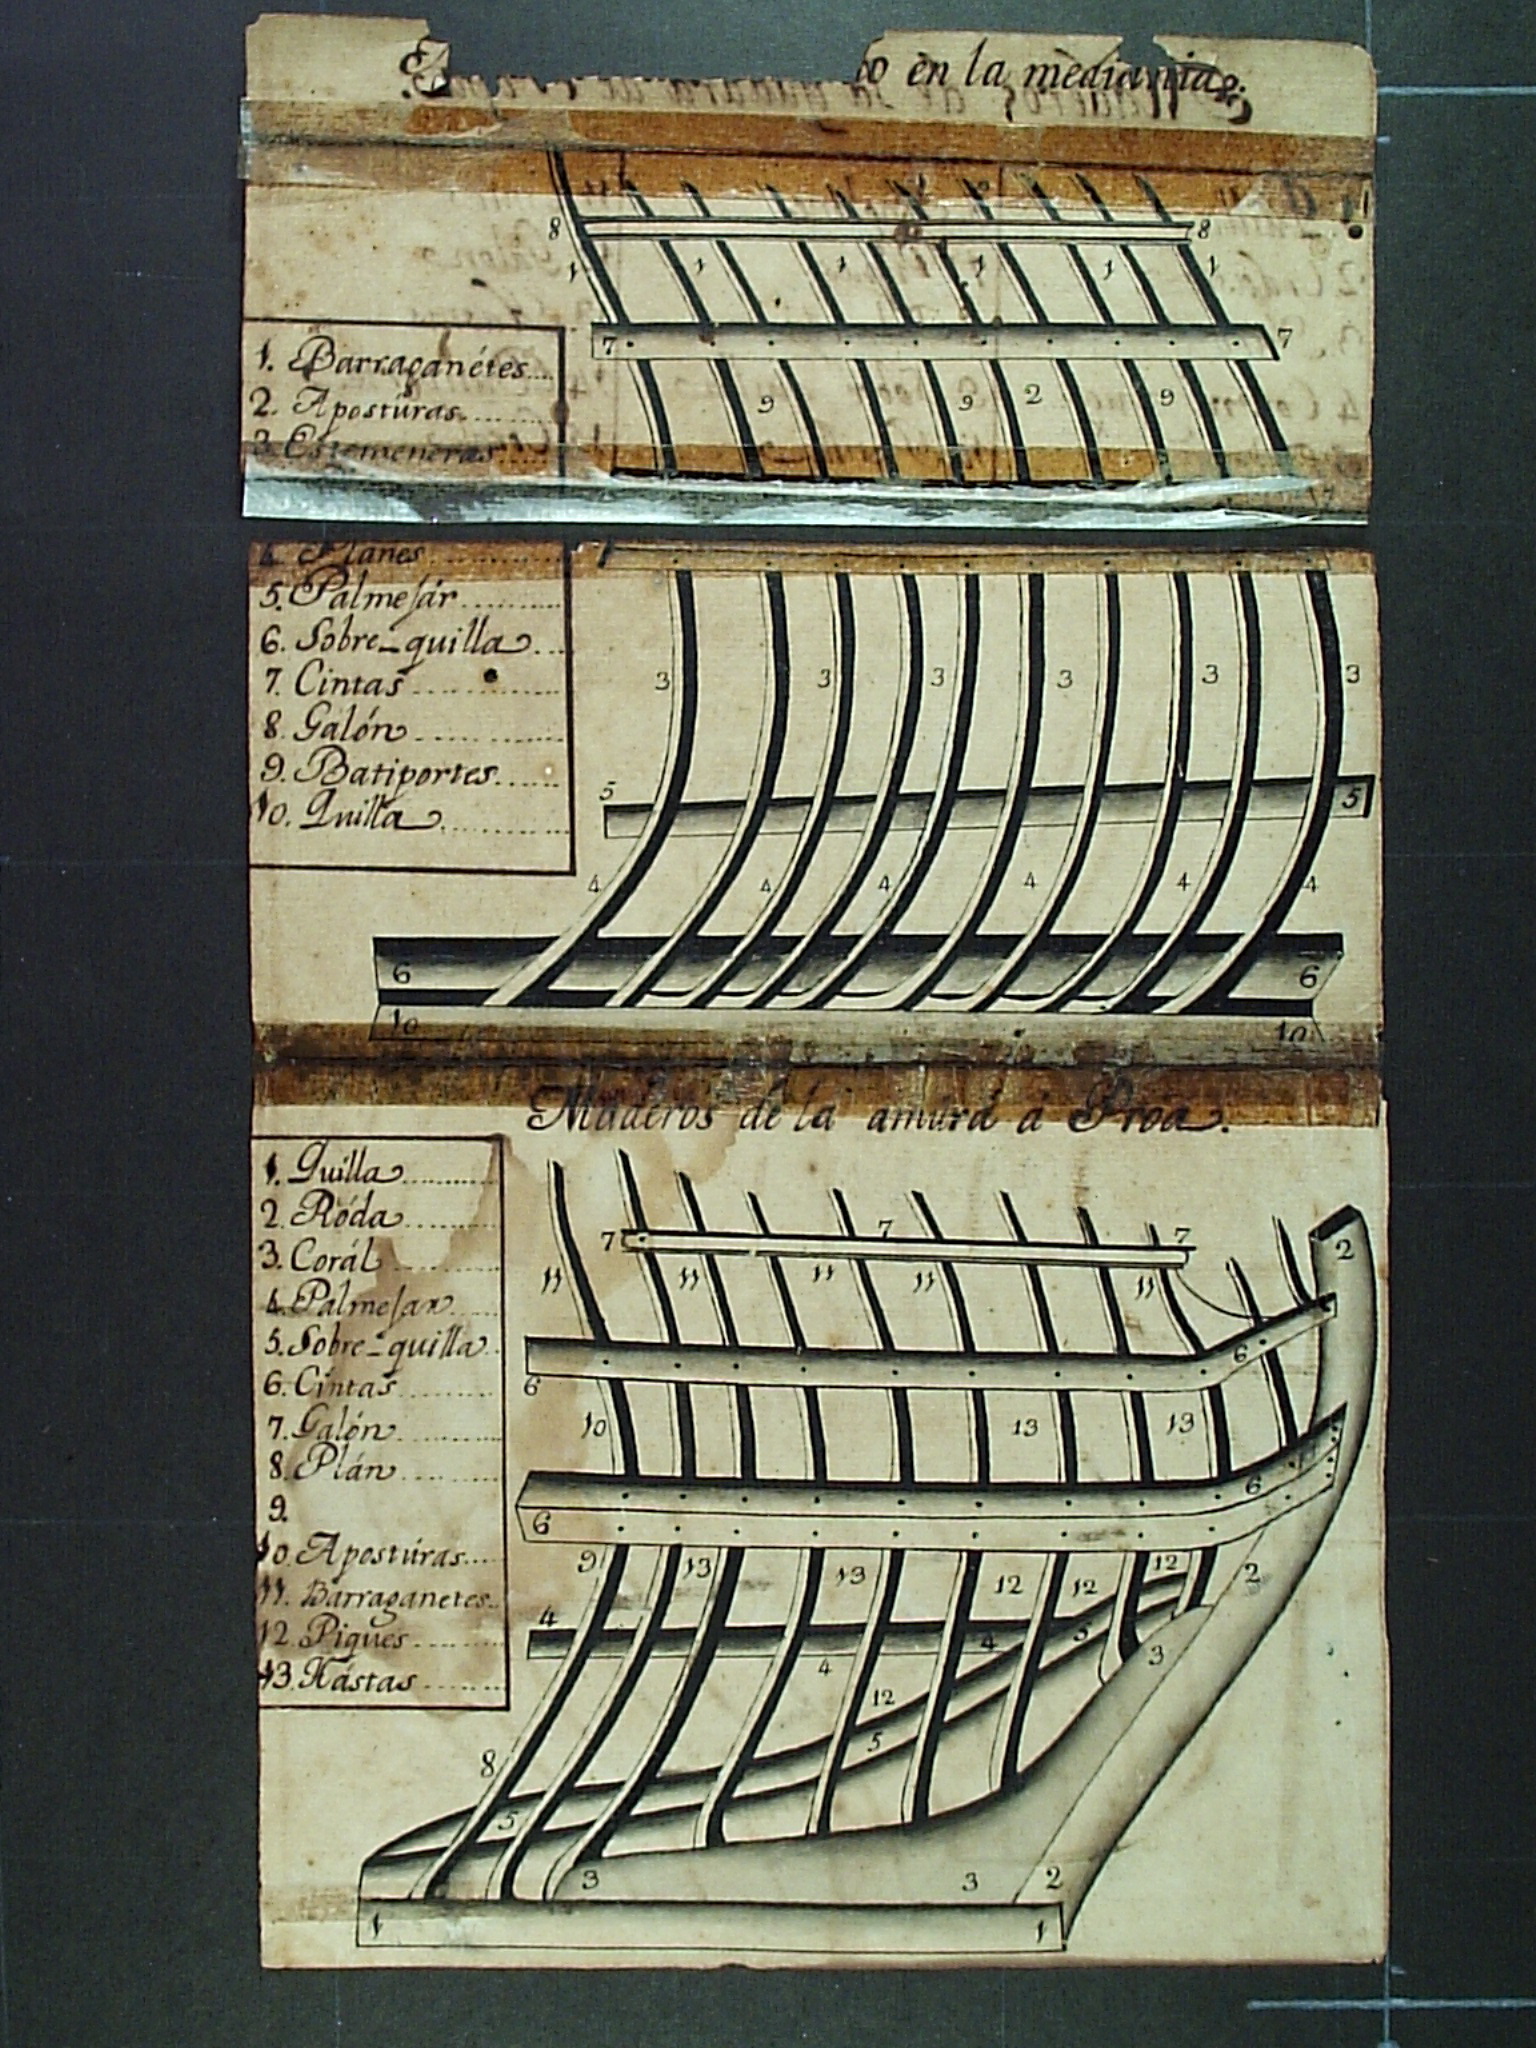 en la mediania
1. Barraganétes
2. Apostúras
3. Estemeneras
4. Planes
5. Palmejár
6. Sobre-quilla
7. Cintas
8. Galón
9. Batiportes
10. Quilla
8 8
1 1 1 1 1 1
7 7
9 9 2 9
3 3 3 3 3 3
5 5
4 4 4 4 4 4
6 6
10 10
Maderos de la amura á Proa.
1. Quilla
2. Róda
3. Corál
4. Palmejar
5. Sobre-quilla
6. Cintas
7. Galón
8. Plán
9.
10. Apostúras
11. Barraganetes
12. Piques
13. Hástas
7 7 7 2
11 11 11 11 11
6 6
10 13 13
6 6
9 13 13 12 12 12 2
4 4 5 3
4
12
5
8
5
3 3 2
1 1